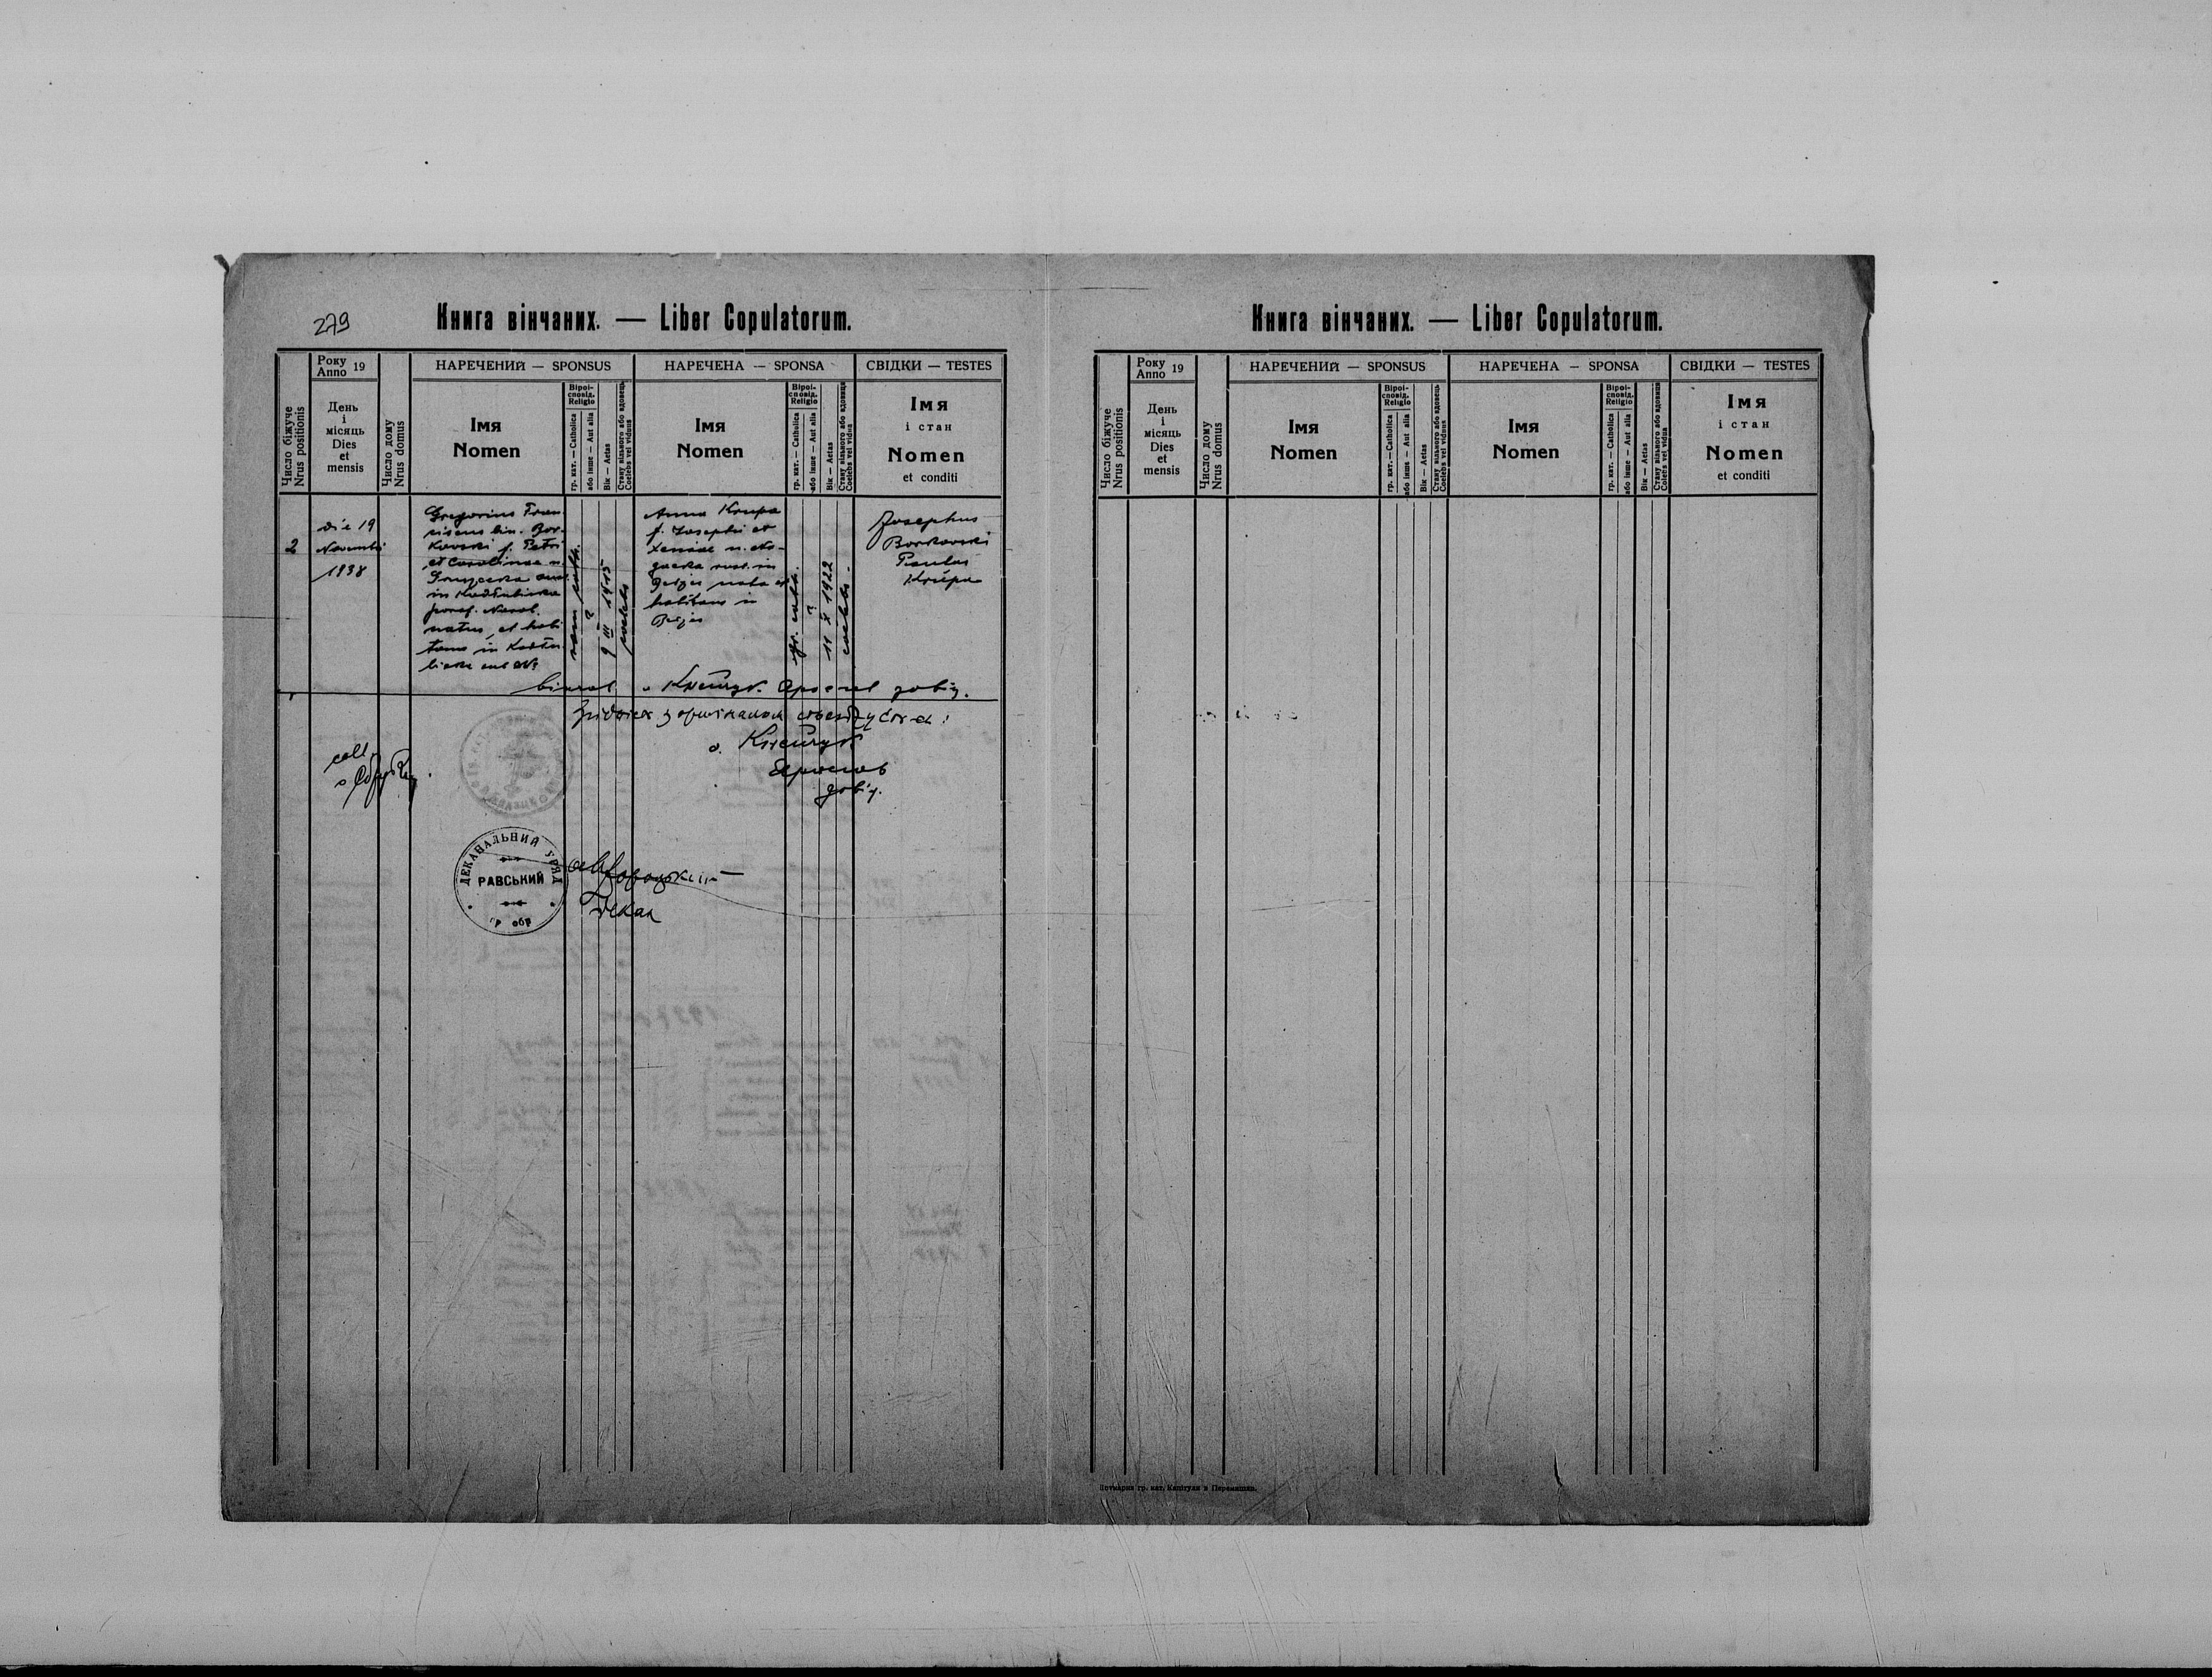 279
Книга вінчаних. — Liber Copulatorum.
Число біжуче
Nrus positionis
Року
Anno 19
День
і
місяць
Dies
et
mensis
Число дому
Nrus domus
НАРЕЧЕНИЙ — SPONSUS
Імя
Nomen
Віроі-
сповід.
Religio
гр. кат. — Catholica
або інше — Aut alia
Вік — Aetas
Стану вільного або вдовець
Coelebs vel viduus
НАРЕЧЕНА — SPONSA
Імя
Nomen
Віроі-
сповід.
Religio
гр. кат. — Catholica
або інше — Aut alia
Вік — Aetas
Стану вільного або вдовиця
Coelebs vel vidua
СВІДКИ — TESTES
Імя
і стан
Nomen
et conditi
2
die 19
Novembri
1938
Gregorius Fran
ciscus bin. Bor-
kowski f. Petri
et Carolinae n.
in
paraf. Narol.
natus, et habi
tans in
rom. cath.
9 III 1915
coelebs
Anna Krupa
f. Josephi et
Xeniae n.
in
nata et
habitans in
gr. cath.
11 X 1922
coelebs
Josephus
Borkowski
Paulus
Krupa
вінчав о.
Згідність з оригіналом стверджується:
о.
Ярослав
завід.
ДЕКАНАЛЬНИЙ УРЯД
РАВСЬКИЙ
гр. обр.
декан
Книга вінчаних. — Liber Copulatorum.
Число біжуче
Nrus positionis
Року
Anno 19
День
і
місяць
Dies
et
mensis
Число дому
Nrus domus
НАРЕЧЕНИЙ — SPONSUS
Імя
Nomen
Віроі-
сповід.
Religio
гр. кат. — Catholica
або інше — Aut alia
Вік — Aetas
Стану вільного або вдовець
Coelebs vel viduus
НАРЕЧЕНА — SPONSA
Імя
Nomen
Віроі-
сповід.
Religio
гр. кат. — Catholica
або інше — Aut alia
Вік — Aetas
Стану вільного або вдовиця
Coelebs vel vidua
СВІДКИ — TESTES
Імя
і стан
Nomen
et conditi
гр. кат. Капітули в Перемишлі.